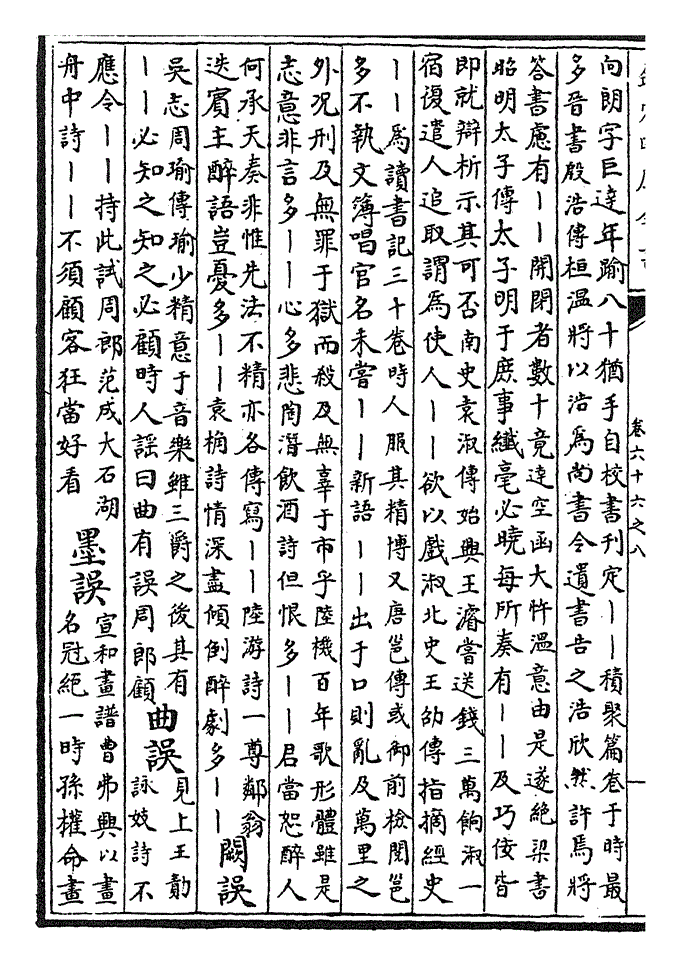 卷六十六之八
向朗字巨達年踰八十猶手自校書刊定丨丨積聚篇卷于時最
多晉書殷浩傳桓溫將以浩爲尚書令遺書告之浩欣然許焉將
答書慮有丨丨開閉者數十竟達空函大忤溫意由是遂絶梁書
昭明太子傳太子明于庶事纖毫必曉每所奏有丨丨及巧佞皆
即就辯析示其可否南史袁淑傳始興王濬嘗送錢三萬餉淑一
宿復遣人追取謂爲使人丨丨欲以戲淑北史王劭傳指摘經史
丨丨爲讀書記三十卷時人服其精博又唐邕傳或御前檢閱邕
多不執文簿唱官名未嘗丨丨新語丨丨出于口則亂及萬里之
外况刑及無罪于獄而殺及無辜于市乎陸機百年歌形體雖是
志意非言多丨丨心多悲陶潛飲酒詩但恨多丨丨君當恕醉人
何承天奏非惟先法不精亦各傳寫丨丨陸游詩一尊鄰翁
迭賓主醉語豈憂多丨丨袁桷詩情深盡傾倒醉劇多丨丨
闕誤
吳志周瑜傳瑜少精意于音樂雖三爵之後其有
丨丨必知之知之必顧時人謡曰曲有誤周郎顧
曲誤
見上王勣
詠妓詩不
應令丨丨持此試周郎范成大石湖
舟中詩丨丨不須顧客狂當好看
墨誤
宣和畫譜曹弗興以畫
名冠絶一時孫權命畫